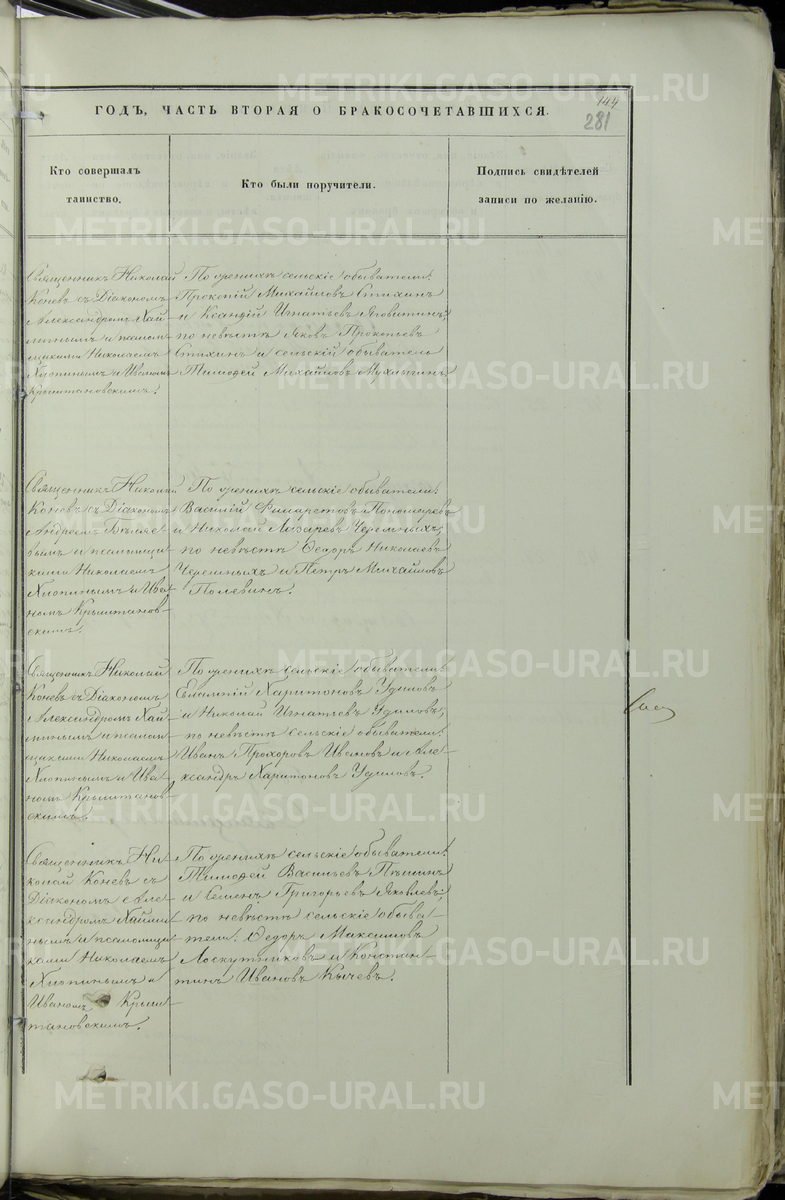 144
ГОДЪ, ЧАСТЬ ВТОРАЯ О БРАКОСОЧЕТАВШИХСЯ.
281
Кто совершалъ
таинство.
Кто были поручители.
Подпись свидѣтелей
записи по желанію.
Священникъ Николай
Коневъ съ Діакономъ
Александромъ Хай-
минымъ и псалом-
щиками Николаемъ
Хлопинымъ и Иваномъ
Крыштановскимъ.
По женихѣ сельскіе обыватели:
Прокопій Михайловъ Стихинъ
и Игнатьевъ
по невѣстѣ Яковъ Прокопьевъ
Стихинъ и сельскій обыватель
Тимофей Михайловъ Мухлыгинъ
Священникъ Николай
Коневъ съ Діакономъ
Андреемъ Бѣляе-
вымъ и псаломщи-
ками Николаемъ
Хлопинымъ и Ива-
номъ Крыштанов-
скимъ.
По женихѣ сельскіе обыватели:
Василій Филаретовъ Пономаревъ
и Николай Лазаревъ Черемныхъ;
по невѣстѣ Ѳедоръ Николаевъ
Черемныхъ и Петръ Михайловъ
Полевинъ.
Священникъ Николай
Коневъ съ Діакономъ
Александромъ Хай-
минымъ и псалом-
щиками Николаемъ
Хлопинымъ и Ива-
номъ Крыштанов-
скимъ.
По женихѣ сельскіе обыватели:
Евлампій Харитоновъ Удиловъ
и Николай Игнатьевъ Удиловъ;
по невѣстѣ сельскіе обыватели:
Иванъ Прохоровъ Ивановъ и Але-
ксандръ Харитоновъ Удиловъ.
Священникъ Ни-
колай Коневъ съ
Діакономъ Але-
ксандромъ Хайми-
нымъ и псаломщи-
ками Николаемъ
Хлопинымъ и
Иваномъ Крыш-
тановскимъ.
По женихѣ сельскіе обыватели:
Тимофей Васильевъ Пѣшинъ
и Семенъ Григорьевъ Яковлевъ;
по невѣстѣ сельскіе обыва-
тели: Ѳедоръ Максимовъ
Лоскутниковъ и Констан-
тинъ Ивановъ Кычевъ.
METRIKI.GASO-URAL.RU